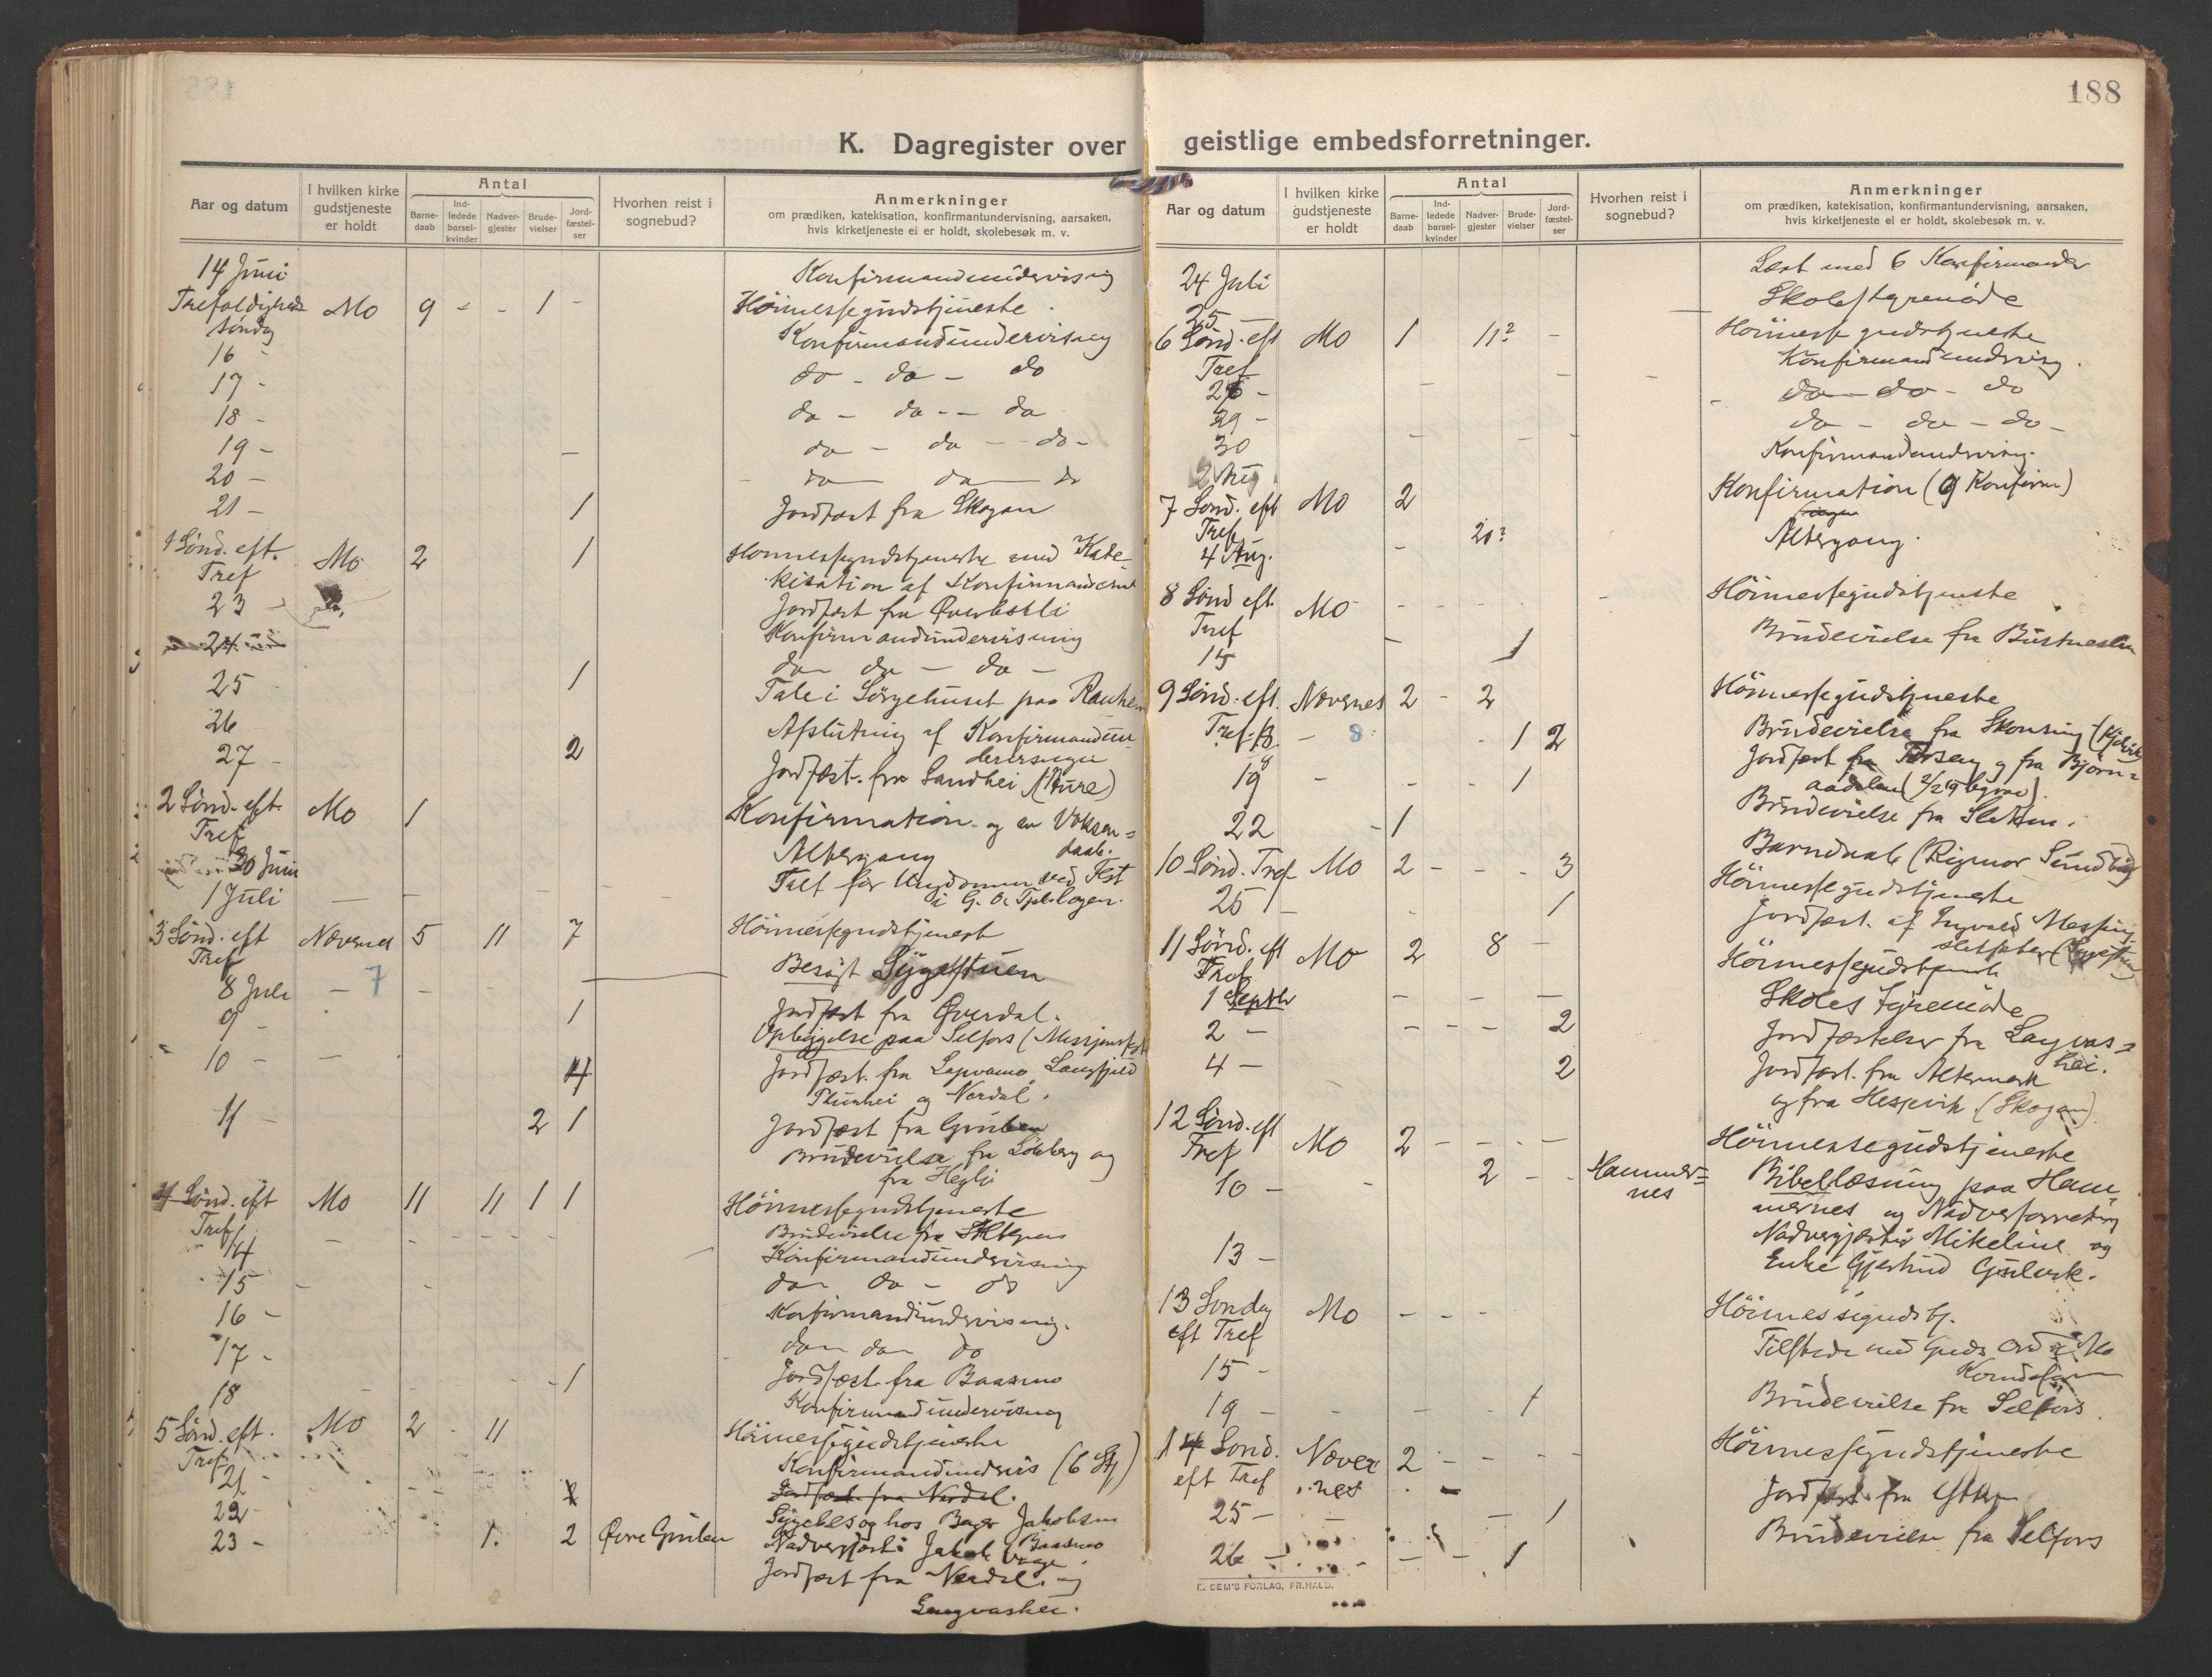 188
K. Dagregister over geistlige embedsforretninger.
Aar og datum
I hvilken kirke gudstjeneste er holdt
Antal
Barne-daab
Ind-ledede barsel-kvinder
Nadver-gjester
Brude-vielser
Jord-fæstel-ser
Hvorhen reist i sognebud?
Anmerkninger
om prædiken, katekisation, konfirmantundervisning, aarsaken,
hvis kirketjeneste ei er holdt, skolebesøk m. v.
14 Juni Konfirmandundervisning
Trefoldigheds Mo 9 - - 1 - Höimessegudstjeneste
søndag
16 - Konfirmandundervisning
17 - do - do - do
18 - do - do - - do
19 - do - do - do -
20 - do do do
21 - 1 Jordfæst fra Skogan
1 Sønd. eft. Mo 2 1 Høimessegudstjeneste med Kate-
Tref kisation af Konfirmanderne
23 - Jordfæst fra
24 Konfirmandundervisning
do do - do -
25 1 Tale i Sørgehuset paa
26 Afslutning af Konfirmandun-
27 - 2 dervisningen
Jordfæst. fra Sandhei
2 Sønd. eft. Mo 1 Konfirmation og en Voksen=
Tref daab.
30 Juni Altergang
1 Juli Talt for Ungdommen ved Fest
i G. T.
3 Sønd. eft Nævernes 5 11 7 Höimessegudstjenest
Tref
8 Juli - 7 Besøgt Sygestuen
9 - 1 Jordfæst fra Øverdal.
10 - Opbyggelse paa Selfors
4 Jordfæst. fra Langfjeld
og Nerdal.
11 - 2 1 Jordfæst fra Gruben
Brudevielse fra og
fra Hegli
4 Sønd. eft Mo 11 11 1 1 Höimessegudstjeneste
Tref. Brudevielse fra
14 Konfirmandundervisning
15 - do do - do
16 - Konfirmandundervisning.
17 - do do do
18 1 Jordfæst. fra Baasmo
Konfirmandundervisning
5 Sønd. eft. Mo 2 - 11 Höimessegudstjeneste
Tref
21 - Konfirmandundervis (6 St)
22 - Jordfæst. fra Nerdal.
23 - 1. 2 Øvre Gruben Sygebesøg hos Jakobsen
Baasmo
Jordfæst fra Nerdal. og
Langvashei.
Aar og datum
I hvilken kirke gudstjeneste er holdt
Antal
Barne-daab
Ind-ledede barsel-kvinder
Nadver-gjester
Brude-vielser
Jord-fæstel-ser
Hvorhen reist i sognebud?
Anmerkninger
om prædiken, katekisation, konfirmantundervisning, aarsaken,
hvis kirketjeneste ei er holdt, skolebesøk m. v.
24 Juli Læst med 6 Konfirmander
25 - Skolestyremøde
6 Sønd. eft Mo 1 11? - Höimesse gudstjeneste
Tref Konfirmandundervisng.
26 - do - do - do
29 - do - do - do -
30 Konfirmandundervisng.
2 Aug
7 Sønd. eft Mo 2 Konfirmation (9 Konfirm)
Tref
4 Aug. 20? Altergang.
8 Sønd eft. Mo - - - - Höimessegudstjeneste
Tref
15 1 Brudevielse fra
9 Sønd. eft. Nævernes 2 - 2 Höimessegudstjeneste
Tref. - 8 1 2 Brudevielse fra Skonseng
Jordfæst fra og fra Bjørn=
aadalen
19 - 1 Brudevielse fra
22 1 Barndaab (Rigmor
10 Sønd. Tref Mo 2 - - - 3 Höimessegudstjeneste
25 - 1 Jordfæst. af Ingvald Messing-
sletsæter
11 Sønd. eft Mo 2 8 - Höimessegudstjeneste
Tref
1 Septbr Skolestyremøde
2 - 2 Jordfæstelser fra Langvas=
hei.
4 - 2 Jordfæst. fra Altermark
og fra Hesjevik (Skogan)
12 Sønd. eft Mo 2 - - - - Höimessegudstjeneste
Tref
10 - 2 - - Hammer=nes Bibellæsning paa Ham-
mernes og Nadverforretning
13 - Mikeline og
Enke Gjertrud
13 Søndag Mo - - - Höimessegudstj.
eft Tref
15 - Tilstede med Guds Ord Mo
19 - 1 Brudevielse fra Selfors.
14 Sønd. Næver 2 - - - Höimessegudstjeneste
eft Tref nes
25 - 1 Jordfæst. fra
26 - 1 Brudevielse fra Selfors
E. SEM'S FORLAG, FR.HALD.